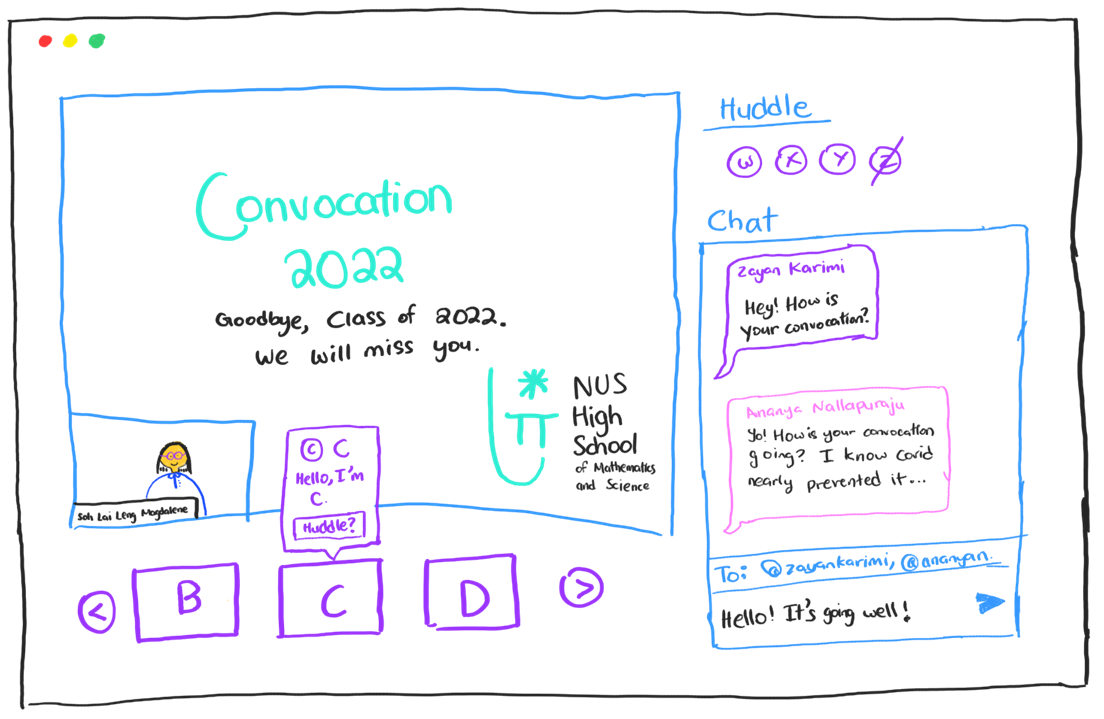 Convocation
2022
Goodbye, Class of 2022.
We will miss you.
NUS
High
School
of Mathematics
and Science
Soh Lai Leng Magdalene
C C
Hello, I'm
C.
Huddle?
<
B
C
D
>
Huddle
W X Y Z
Chat
Zayan Karimi
Hey! How is
your convocation?
Ananya Nallapuraju
Yo! How is your convocation
going? I know covid
nearly prevented it...
To: @zayankarimi, @ananyan.
Hello! It's going well!